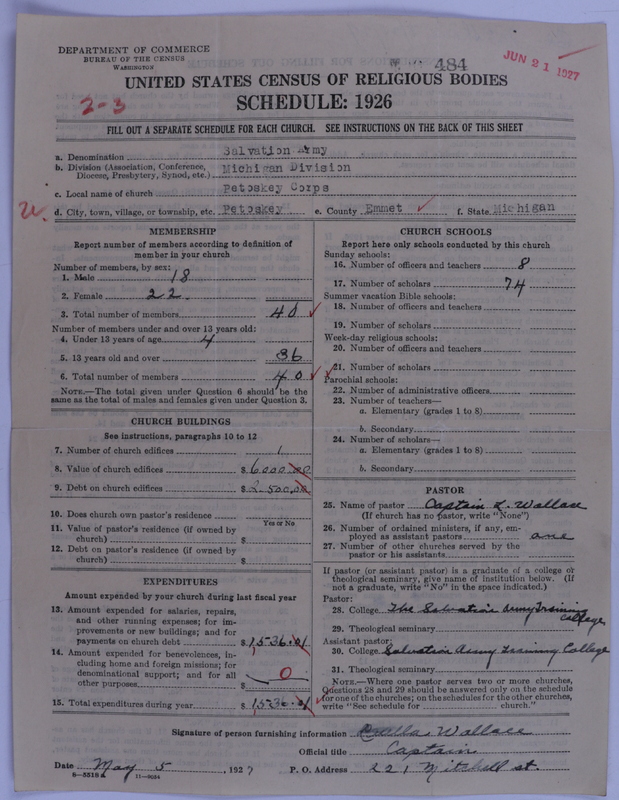 DEPARTMENT OF COMMERCE
BUREAU OF THE CENSUS
WASHINGTON
484
JUN 21 1927
UNITED STATES CENSUS OF RELIGIOUS BODIES
2-3
SCHEDULE: 1926
FILL OUT A SEPARATE SCHEDULE FOR EACH CHURCH. SEE INSTRUCTIONS ON THE BACK OF THIS SHEET
a. Denomination Salvation Army
b. Division (Association, Conference, Diocese, Presbytery, Synod, etc.) Michigan Division
c. Local name of church Petoskey Corps
d. City, town, village, or township, etc. Petoskey e. County Emmet f. State Michigan
MEMBERSHIP
Report number of members according to definition of
member in your church
Number of members, by sex:
1. Male 18
2. Female 22.
3. Total number of members 40
Number of members under and over 13 years old:
4. Under 13 years of age 4
5. 13 years old and over 36
6. Total number of members 40
NOTE.—The total given under Question 6 should be the
same as the total of males and females given under Question 3.
CHURCH BUILDINGS
See instructions, paragraphs 10 to 12
7. Number of church edifices 1
8. Value of church edifices $ 6000.00
9. Debt on church edifices $ 2.500.00
10. Does church own pastor's residence
Yes or No
11. Value of pastor's residence (if owned by
church) $
12. Debt on pastor's residence (if owned by
church) $
EXPENDITURES
Amount expended by your church during last fiscal year
13. Amount expended for salaries, repairs,
and other running expenses; for im-
provements or new buildings; and for
payments on church debt $ 1,536.01
14. Amount expended for benevolences, in-
cluding home and foreign missions; for
denominational support; and for all
other purposes $ 0
15. Total expenditures during year $ 1,536.01
CHURCH SCHOOLS
Report here only schools conducted by this church
Sunday schools:
16. Number of officers and teachers 8
17. Number of scholars 74
Summer vacation Bible schools:
18. Number of officers and teachers
19. Number of scholars
Week-day religious schools:
20. Number of officers and teachers
21. Number of scholars
Parochial schools:
22. Number of administrative officers
23. Number of teachers—
a. Elementary (grades 1 to 8)
b. Secondary
24. Number of scholars—
a. Elementary (grades 1 to 8)
b. Secondary
PASTOR
25. Name of pastor Captain L. Wallace
(If church has no pastor, write "None")
26. Number of ordained ministers, if any, em-
ployed as assistant pastors one
27. Number of other churches served by the
pastor or his assistants
If pastor (or assistant pastor) is a graduate of a college or
theological seminary, give name of institution below. (If
not a graduate, write "No" in the space indicated.)
Pastor:
28. College The Salvation Army Training College
29. Theological seminary
Assistant pastor:
30. College Salvation Army Training College
31. Theological seminary
NOTE.—Where one pastor serves two or more churches,
Questions 28 and 29 should be answered only on the schedule
for one of the churches; on the schedules for the other churches,
write "See schedule for church."
Signature of person furnishing information Wallace
Official title Captain
Date May 5, 1927 P. O. Address 221 Mitchell st.
8—5518 11—9024